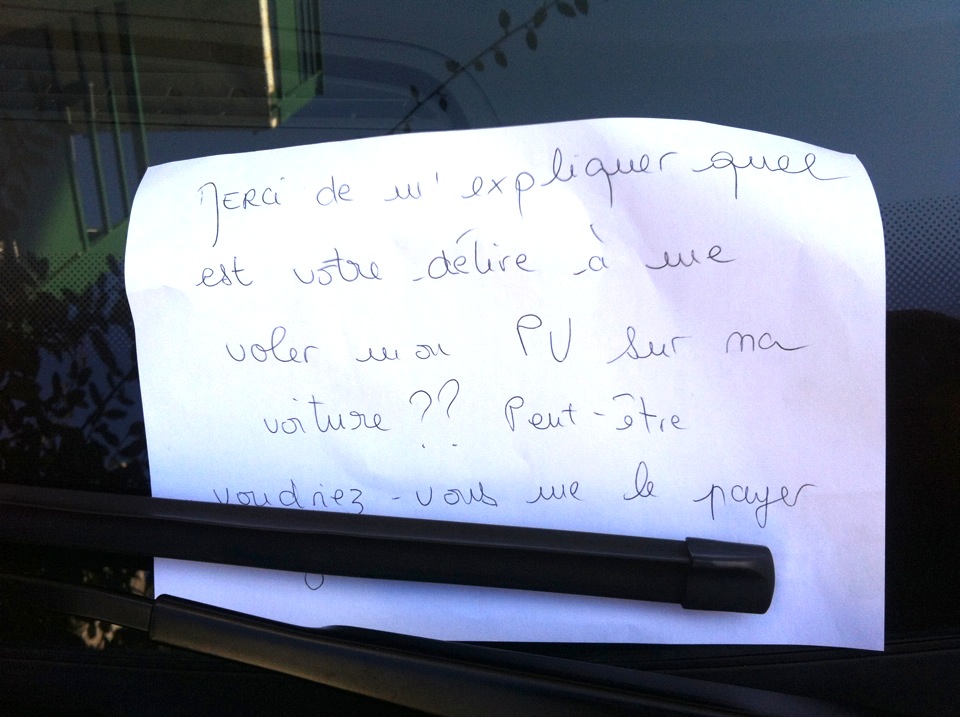 Merci de m'expliquer quel
est votre délire à me
voler mon PV sur ma
voiture ?? Peut-être
voudriez-vous me le payer